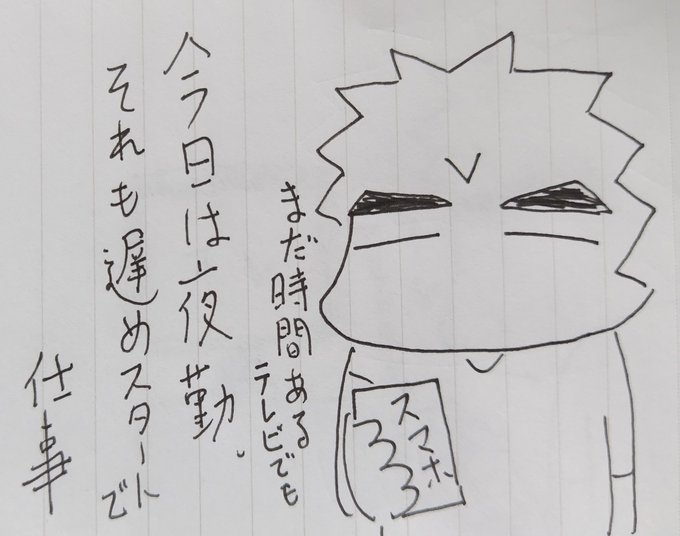 今日は夜勤。
それも遅めスタートで
仕事
まだ時間ある
テレビでも
スマホ